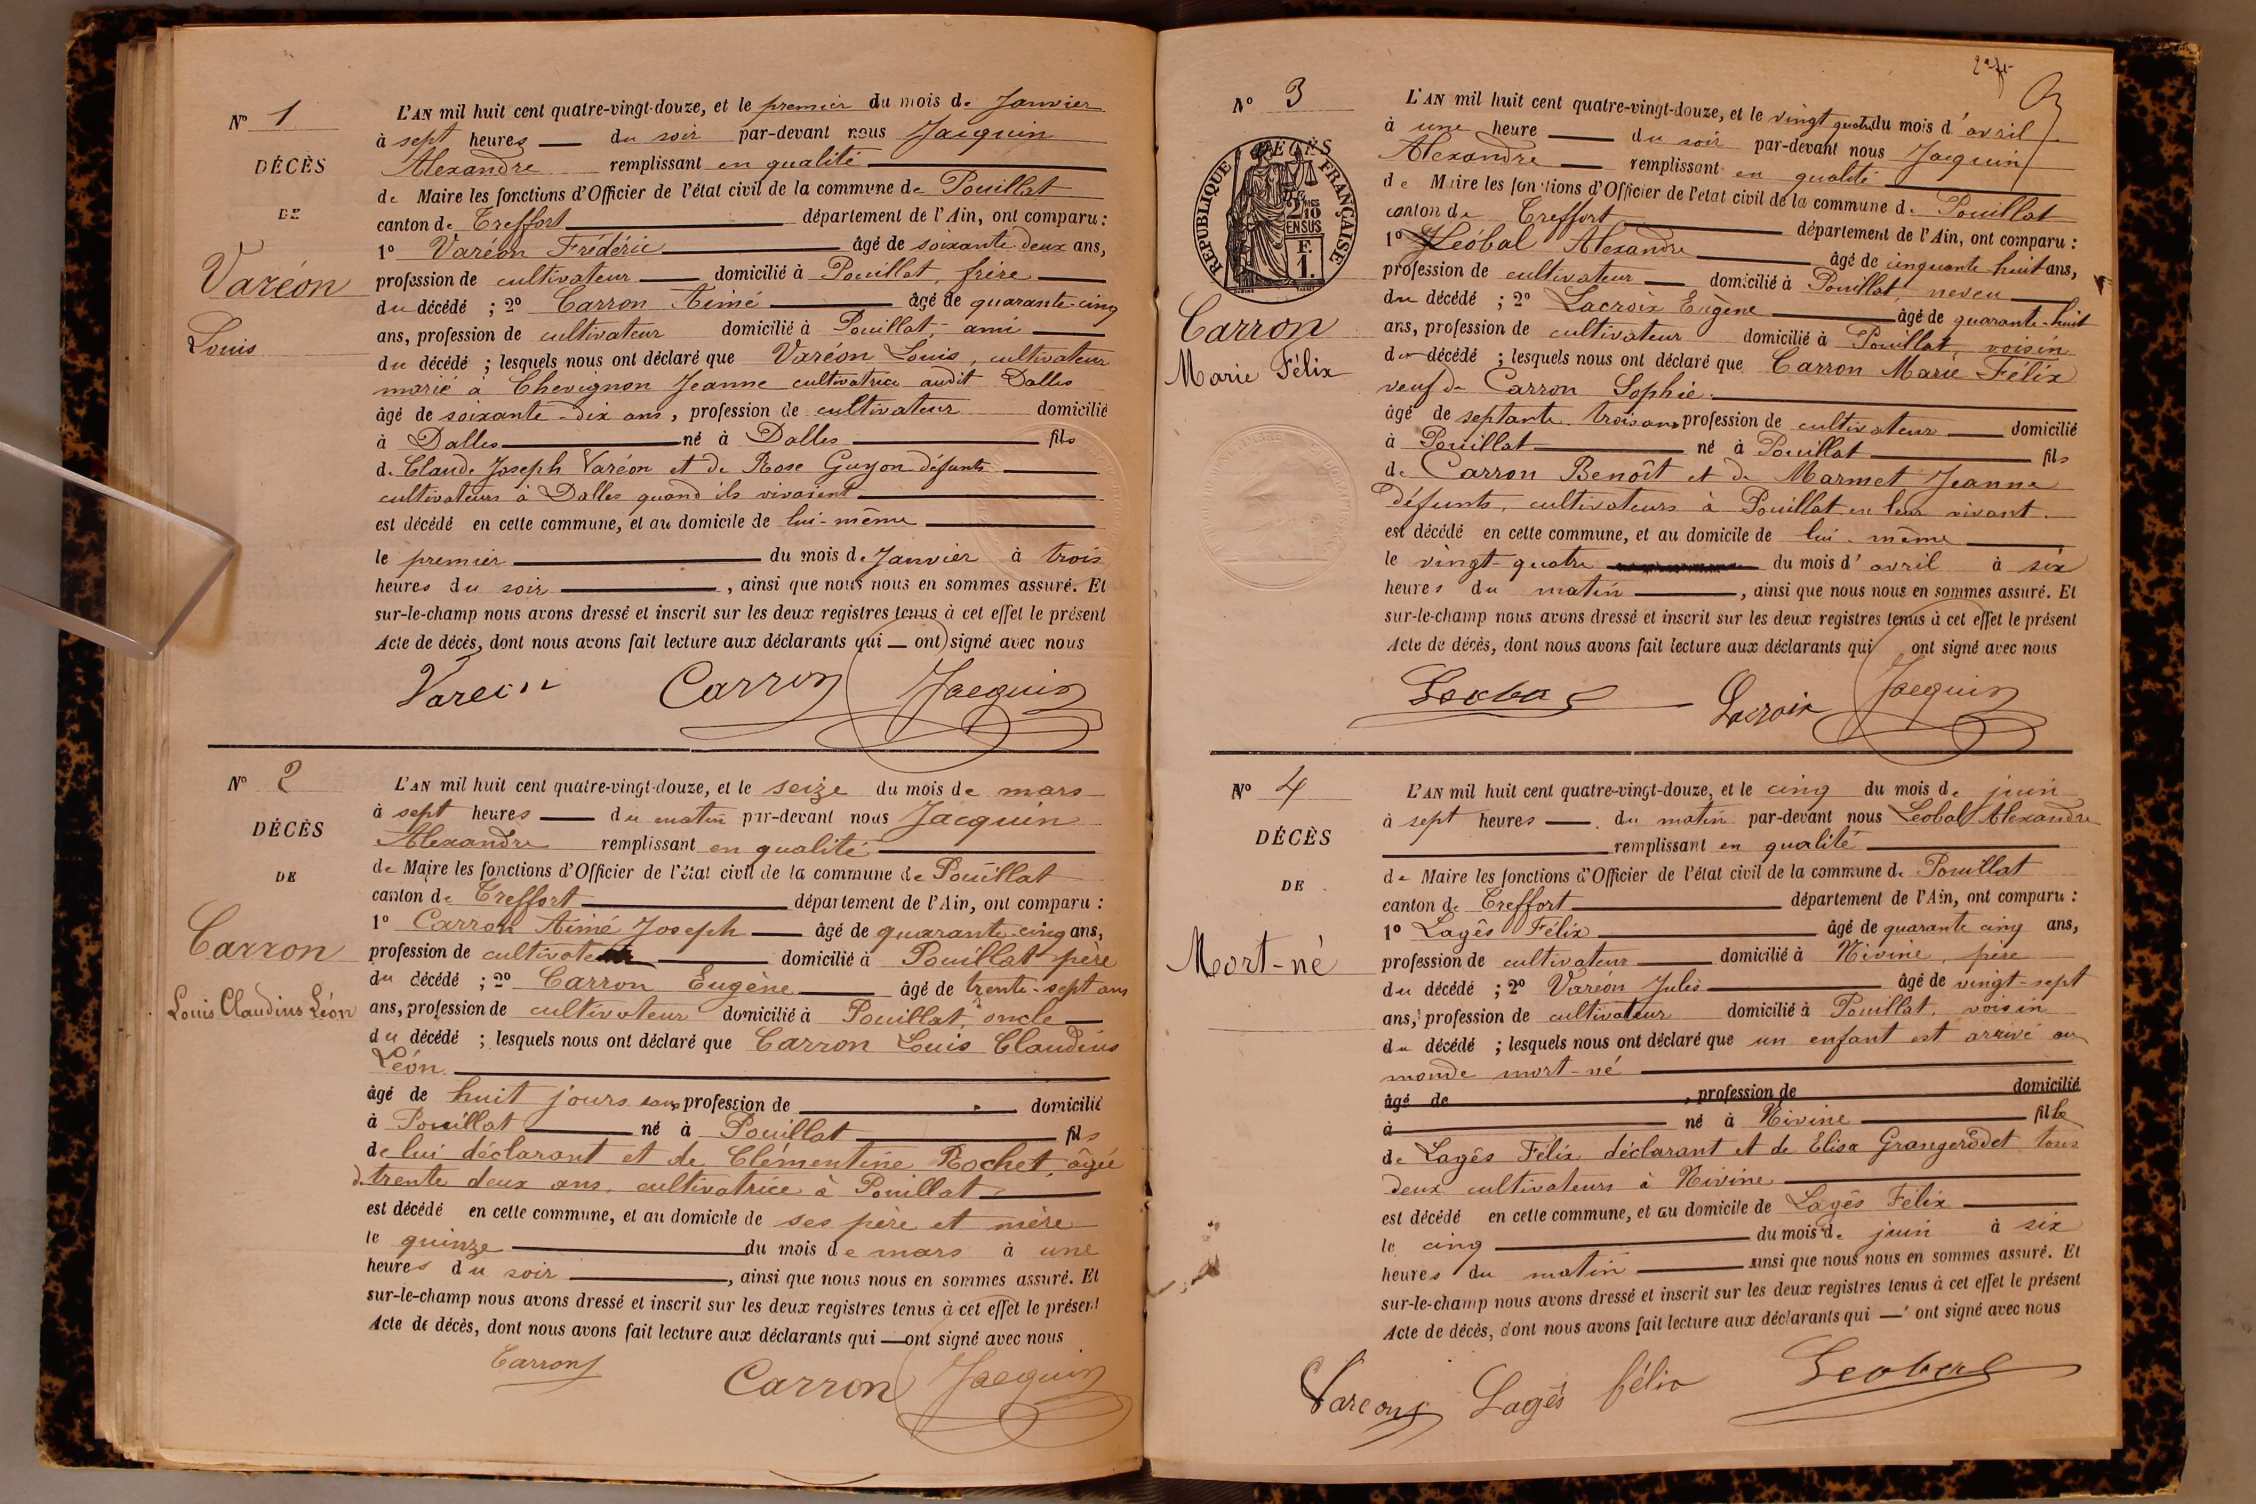 N° 1
DÉCÈS
DE
Varéon
Louis
L'AN mil huit cent quatre-vingt-douze, et le premier du mois de Janvier
à sept heures du soir par-devant nous Jacquin
Alexandre remplissant en qualité
de Maire les fonctions d'Officier de l'état civil de la commune de Pouillat
canton de Treffort département de l'Ain, ont comparu :
1° Varéon Frédéric âgé de soixante-deux ans,
profession de cultivateur domicilié à Pouillat, frère
du décédé ; 2° Carron Aimé âgé de quarante-cinq
ans, profession de cultivateur domicilié à Pouillat, ami
du décédé ; lesquels nous ont déclaré que Varéon Louis, cultivateur
marié à Chevignon Jeanne cultivatrice audit Dalles
âgé de soixante-dix ans, profession de cultivateur domicilié
à Dalles né à Dalles fils
de Claude Joseph Varéon et de Rose Guyon défunts
cultivateurs à Dalles quand ils vivaient
est décédé en cette commune, et au domicile de lui-même
le premier du mois de Janvier à trois
heures du soir, ainsi que nous nous en sommes assuré. Et
sur-le-champ nous avons dressé et inscrit sur les deux registres tenus à cet effet le présent
Acte de décès, dont nous avons fait lecture aux déclarants qui ont signé avec nous
Vareon Carron Jacquin
N° 2
DÉCÈS
DE
Carron
Louis Claudius Léon
L'AN mil huit cent quatre-vingt-douze, et le seize du mois de mars
à sept heures du matin par-devant nous Jacquin
Alexandre remplissant en qualité
de Maire les fonctions d'Officier de l'état civil de la commune de Pouillat
canton de Treffort département de l'Ain, ont comparu :
1° Carron Aimé Joseph âgé de quarante-cinq ans,
profession de cultivateur domicilié à Pouillat père
du décédé ; 2° Carron Eugène âgé de trente-sept ans
ans, profession de cultivateur domicilié à Pouillat, oncle
du décédé ; lesquels nous ont déclaré que Carron Louis Claudius
Léon
âgé de huit jours sans profession de domicilié
à Pouillat né à Pouillat fils
de lui déclarant et de Clémentine Rochet, âgée
de trente deux ans, cultivatrice à Pouillat
est décédé en cette commune, et au domicile de ses père et mère
le quinze du mois de mars à une
heures du soir, ainsi que nous nous en sommes assuré. Et
sur-le-champ nous avons dressé et inscrit sur les deux registres tenus à cet effet le présent
Acte de décès, dont nous avons fait lecture aux déclarants qui ont signé avec nous
Carron Carron Jacquin
N° 3
DÉCÈS
RÉPUBLIQUE FRANÇAISE
2/10 EN SUS
F. 1.
Carron
Marie Félix
L'AN mil huit cent quatre-vingt-douze, et le vingt quatre du mois d'avril
à une heure du soir par-devant nous Jacquin
Alexandre remplissant en qualité
de Maire les fonctions d'Officier de l'état civil de la commune de Pouillat
canton de Treffort département de l'Ain, ont comparu :
1° Léobal Alexandre âgé de cinquante-huit ans,
profession de cultivateur domicilié à Pouillat, neveu
du décédé ; 2° Lacroix Eugène âgé de quarante-huit
ans, profession de cultivateur domicilié à Pouillat voisin
du décédé ; lesquels nous ont déclaré que Carron Marie Félix
veuf de Carron Sophie.
âgé de septante-trois ans profession de cultivateur domicilié
à Pouillat né à Pouillat fils
de Carron Benoît et de Marmet Jeanne
défunts, cultivateurs à Pouillat en leur vivant.
est décédé en cette commune, et au domicile de lui-même
le vingt-quatre du mois d'avril à six
heures du matin, ainsi que nous nous en sommes assuré. Et
sur-le-champ nous avons dressé et inscrit sur les deux registres tenus à cet effet le présent
Acte de décès, dont nous avons fait lecture aux déclarants qui ont signé avec nous
Leobal Lacroix Jacquin
N° 4
DÉCÈS
DE
Mort-né
L'AN mil huit cent quatre-vingt-douze, et le cinq du mois de juin
à sept heures du matin par-devant nous Léobal Alexandre
remplissant en qualité
de Maire les fonctions d'Officier de l'état civil de la commune de Pouillat
canton de Treffort département de l'Ain, ont comparu :
1° Lagês Félix âgé de quarante cinq ans,
profession de cultivateur domicilié à Nivine, père
du décédé ; 2° Varéon Jules âgé de vingt-sept
ans, profession de cultivateur domicilié à Pouillat, voisin
du décédé ; lesquels nous ont déclaré que un enfant est arrivé au
monde mort-né
âgé de , profession de domicilié
à né à Nivine fille
de Lagês Félix déclarant et de Elisa Grangerodet tous
deux cultivateurs à Nivine
est décédé en cette commune, et au domicile de Lagês Félix
le cinq du mois de juin à six
heures du matin ainsi que nous nous en sommes assuré. Et
sur-le-champ nous avons dressé et inscrit sur les deux registres tenus à cet effet le présent
Acte de décès, dont nous avons fait lecture aux déclarants qui ont signé avec nous
Vareon Lagês félix Leobal